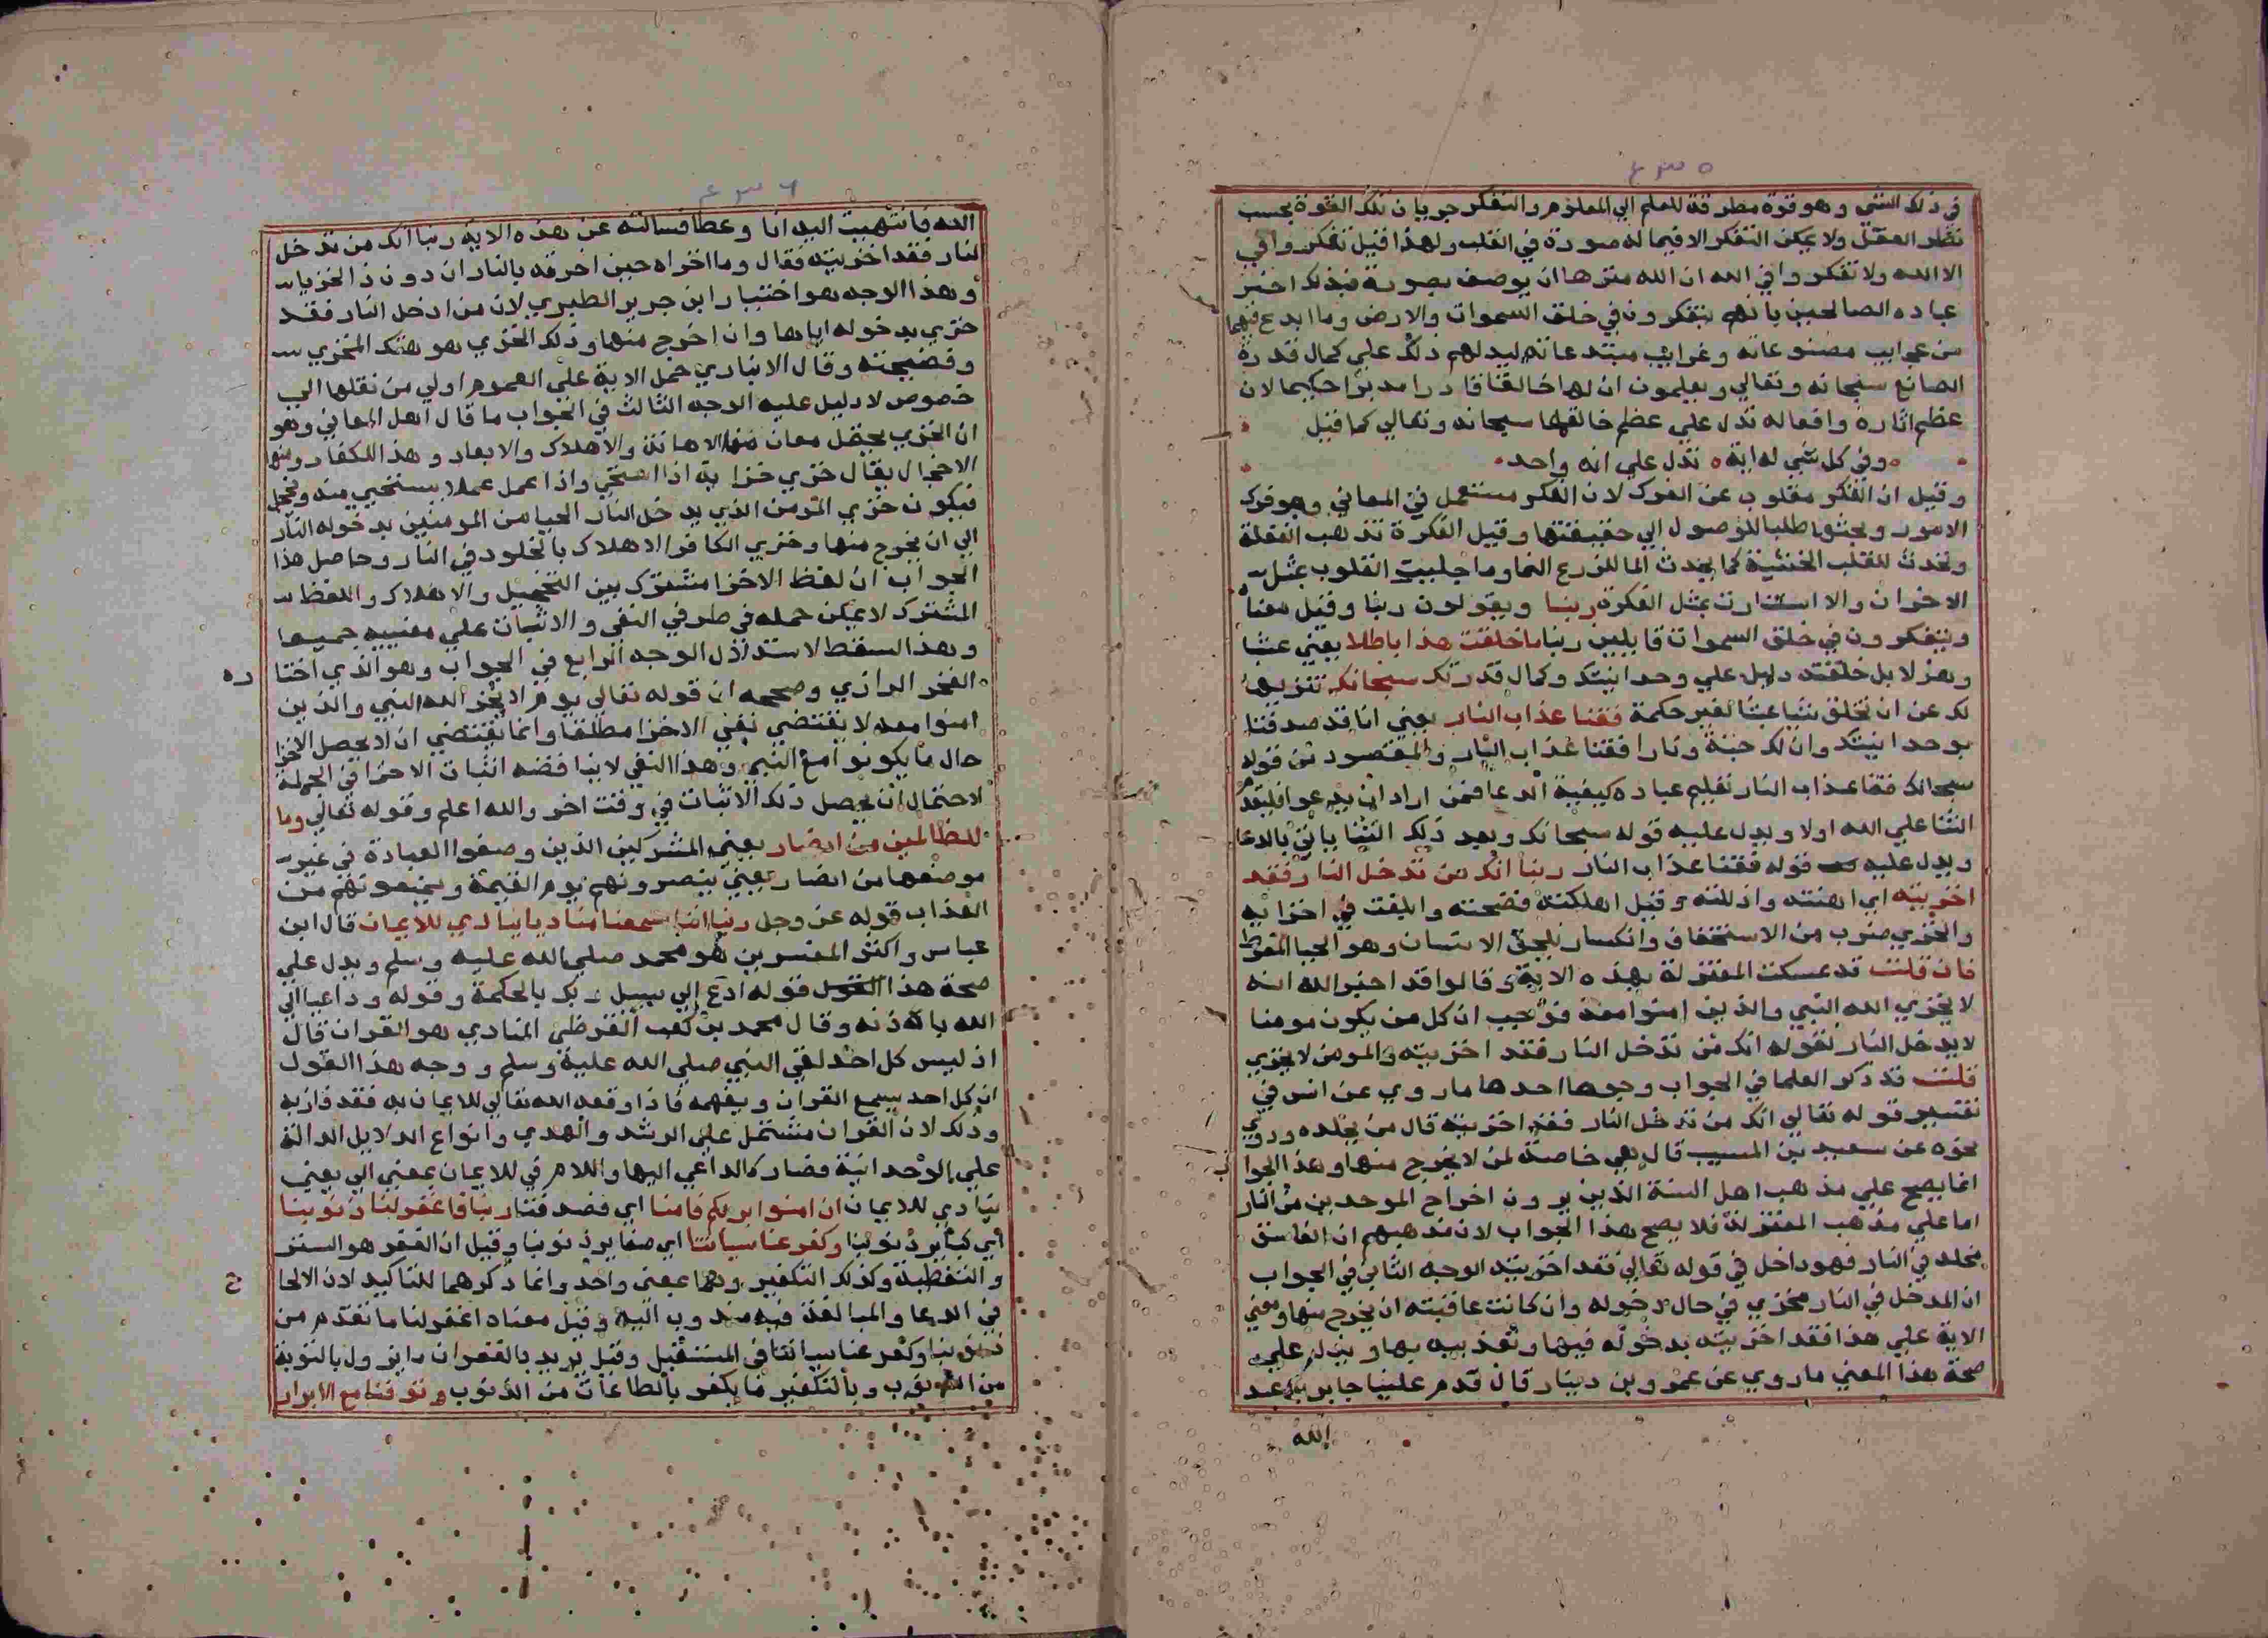 في ذلك الشي وهو قوة مطرقة للعلم الي المعلوم والتفكر جريان تلك القوة بحسب
نظر العقل ولا يمكن التفكر الا فيما له صورة في القلب ولهذا قيل تفكروا في
الا الله ولا تفكروا في الله ان الله منزها ان يوصف بصورة فبذلك اخبر
عباده الصالحين بانهم يتفكرون في خلق السموات والارض وما ابدع فيهما
من عجايب مصنوعاته وغرايب مبتدعاته ليدلهم ذلك علي كمال قدرة
الصانع سبحانه وتعالي ويعلمون ان لها خالقا قادرا مدبرا حكيما لان
عظم اثاره وافعاله تدل علي عظم خالقها سبحانه وتعالي كما قيل
وفي كل شي له اية تدل علي انه واحد
وقيل ان الفكر مقلوب عن الفرك لان الفكر مستعمل في المعاني وهو فرك
الامور وبحثها طلبا للوصول الي حقيقتها وقيل الفكرة تذهب الغفلة
وتحدث للقلب الخشية كما يحدث الما للزرع النما وما جلبيت القلوب بمثل
الاحزان والا استنارت بمثل الفكرة ربنا ويقولون ربنا وقيل معنا
ويتفكرون في خلق السموات قايلين ربنا ما خلقت هذا باطلا يعني عبثا
وهزلا بل خلقته دليل علي وحدانيتك وكمال قدرتك سبحانك تنزيها
لك عن ان تخلق شيا عبثا لغير حكمة فقنا عذاب النار يعني انا قد صدقنا
بوحدانيتك وان لك جنة ونارا فقنا عذاب النار والمقصود من قوله
سبحانك فقنا عذاب النار تعليم عباده كيفية الدعا فمن اراد ان يدعوا فليقدم
الثنا علي الله اولا ويدل عليه قوله سبحانك وبعد ذلك الثنا ياتي بالدعا
ويدل عليه قوله فقنا عذاب النار ربنا انك من تدخل النار فقد
اخزيته اي اهنته واذللته وقيل اهلكته فضحته وابلغت في اخزايه
والخزي ضرب من الاستخفاف وانكسار يلحق الانسان وهو الحيا المفرط
فان قلت قد عسكت المعتزلة بهذه الاية وقالوا قد اخبر الله انه
لا يخزي الله النبي والذين امنوا معه فوجب ان كل من يكون مومنا
لا يدخل النار لقوله انك من تدخل النار فقد اخزيته والمومن لا يخزي
قلت قد ذكر العلما في الجواب وجوها احدها ما روي عن انس في
تفسير قوله تعالي انك من تدخل النار فقد اخزيته قال من يخلده وروي
نحوه عن سعيد بن المسيب قال هي خاصة لمن لا يخرج منها وهذا الجوا ب
انما يصح علي مذهب اهل السنة الذين يرون اخراج الموحدين من النار
اما علي مذهب المعتزلة فلا يصح هذا الجواب لان مذهبهم ان الفاسق
مخلد في النار فهو داخل في قوله تعالي فقد اخزيته الوجه الثاني في الجواب
ان المدخل في النار مخزي في حال دخوله وان كانت عاقبته ان يخرج منها ومعني
الاية علي هذا فقد اخزيته بدخوله فيها وتعذيبه بها ويدل علي
صحة هذا المعني ما روي عن عمرو بن دينار قال قدم علينا جابر بن عبد
الله
الله فانتهيت اليه انا وعطا فسالته عن هذه الاية ربنا انك من تدخل
النار فقد اخزيته فقال وما اخزاه حين احرقه بالنار ان دون ذا لخزيا
وهذا الوجه هو اختيار ابن جرير الطبري لان من ادخل النار فقد
خزي بدخوله اياها وان اخرج منها وذلك الخزي هو هتك المخزي
وفضيحته وقال الانباري حمل الاية علي العموم اولي من نقلها الي
خصوص لا دليل عليه الوجه الثالث في الجواب ما قال اهل المعاني وهو
ان الخزي يحتمل معان منها الاهانة والاهلاك والابعاد وهذا للكفار ومنها
الاخجال يقال خزي خزاية اذا استحي واذا عمل عملا يستحيي منه ويخجل
فيكون خزي المومن الذي يدخل النار الحيا من المومنين بدخوله النار
الي ان يخرج منها وخزي الكافر الاهلاك بالخلود في النار وحاصل هذا
الجواب ان لفظ الاخزا مشترك بين التخجيل والاهلاك واللفظ
المشترك لا يمكن حمله في طرفي النفي والاثبات علي معنييه جميعا
وهذا السقط الاستدلال الوجه الرابع في الجواب وهو الذي اختا ره
الفخر الرازي وصححه ان قوله تعالي يوم لا يخزي الله النبي والذين
امنوا معه لا يقتضي نفي الاخزا مطلقا وانما يقتضي ان لا يحصل الاخزا
حال ما يكونوا مع النبي وهذا النفي لا يناقضه اثبات الاخزا في الجملة
لاحتمال ان يحصل ذلك الاثبات في وقت اخر والله اعلم وقوله تعالي وما
للظالمين من انصار يعني المشركين الذين وضعوا العبادة في غير
موضعها من انصار يعني ينصرونهم يوم القيمة ويمنعونهم من
العذاب قوله عز وجل ربنا اننا سمعنا مناديا ينادي للايمان قال ابن
عباس واكثر المفسرين هو محمد صلي الله عليه وسلم ويدل علي
صحة هذا القول قوله ادع الي سبيل ربك بالحكمة وقوله وداعيا الي
الله باذنه وقال محمد بن كعب القرظي المنادي هو القران قال
اذ ليس كل احد لقي النبي صلي الله عليه وسلم ووجه هذا القول
ان كل احد يسمع القران ويفهمه فاذا وفقه الله تعالي للايمان به فقد فاز به
وذلك لان القران مشتمل علي الرشد والهدي وانواع الدلايل الدالة
علي الوحدانية فصار كالداعي اليها واللام في للايمان بمعني الي يعني
ينادي للايمان ان امنوا بربكم فامنا اي فصدقنا ربنا فاغفر لنا ذنوبنا
اي كباير ذنوبنا وكفر عنا سياتنا اي صغاير ذنوبنا وقيل ان الغفر هو الستر
والتغطية وكذلك التكفير وهما بمعني واحد وانما ذكرهما للتاكيد لان الالحا ح
في الدعا والمبالغة فيه مندوب اليه وقيل معناه اغفر لنا ما تقدم من
ذنوبنا وكفر عنا سياتنا في المستقبل وقيل يريد بالغفران ما يزول بالتوبة
من الذنوب وبالتكفير ما يكفر بالطاعات من الذنوب وتوفنا مع الابرار